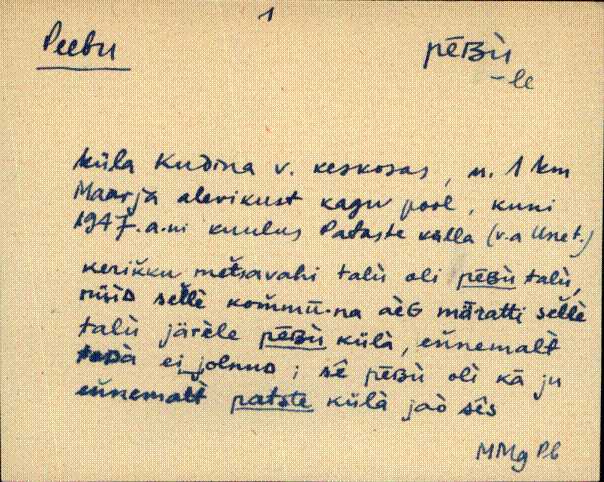 1
Peebu
pēʙù
-le
küla Kudina v. keskosas, u. 1 km
Maarja alevikust kagu pool, kuni
1947. a.-ni kuulus Pataste külla (v.a Unet.)
kerikku metsavahi talù oli pēʙù talù,
nüüᴅ sellè kommū·na aèɢ märatti sellè
talù järèle pēʙù külà, ennemalt
ei jolnuᴅ; sē pēʙù oli kā ju
ennemalt patste külà jaò sēs
MMg Pb